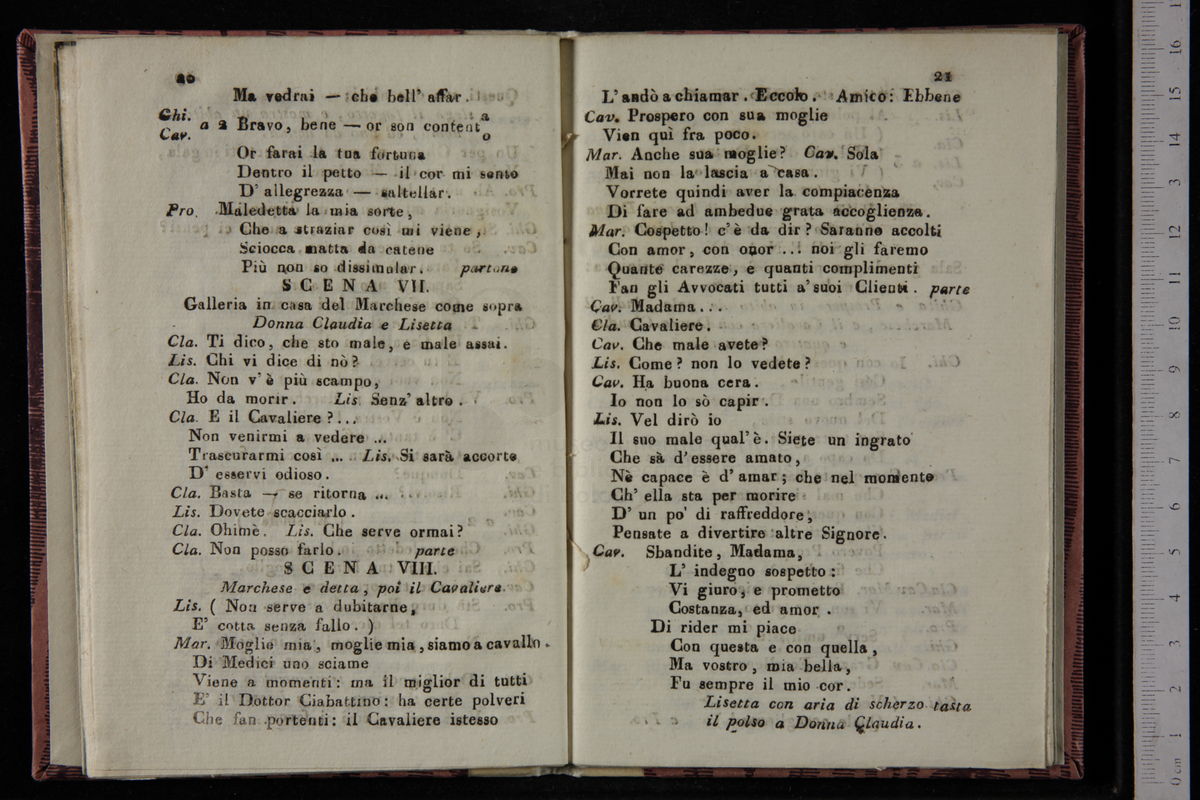 20
Ma vedrai — che bell' affar.
Ghi. Cav. a 2 Bravo, bene — or son contento/a
Or farai la tua fortuna
Dentro il petto — il cor mi sento
D' allegrezza — saltellar.
Pro. Maledetta la mia sorte,
Che a straziar così mi viene,
Sciocca matta da catene
Più non so dissimular. partono
SCENA VII.
Galleria in casa del Marchese come sopra
Donna Claudia e Lisetta
Cla. Ti dico, che sto male, e male assai.
Lis. Chi vi dice di nò?
Cla. Non v' è più scampo,
Ho da morir. Lis. Senz' altro.
Cla. E il Cavaliere?...
Non venirmi a vedere ...
Trascurarmi così ... Lis. Si sarà accorto
D' esservi odioso.
Cla. Basta — se ritorna ...
Lis. Dovete scacciarlo.
Cla. Ohimè. Lis. Che serve ormai?
Cla. Non posso farlo. parte
SCENA VIII.
Marchese e detta, poi il Cavaliere
Lis. ( Non serve a dubitarne,
E' cotta senza fallo. )
Mar. Moglie mia, moglie mia, siamo a cavallo.
Di Medici uno sciame
Viene a momenti: ma il miglior di tutti
E' il Dottor Ciabattino: ha certe polveri
Che fan portenti: il Cavaliere istesso
21
L' andò a chiamar. Eccolo. Amico: Ebbene
Cav. Prospero con sua moglie
Vien quì fra poco.
Mar. Anche sua moglie? Cav. Sola
Mai non la lascia a casa.
Vorrete quindi aver la compiacenza
Di fare ad ambedue grata accoglienza.
Mar. Cospetto! c' è da dir? Saranno accolti
Con amor, con onor ... noi gli faremo
Quante carezze, e quanti complimenti
Fan gli Avvocati tutti a' suoi Clienti. parte
Cav. Madama...
Cla. Cavaliere.
Cav. Che male avete?
Lis. Come? non lo vedete?
Cav. Ha buona cera.
Io non lo sò capir.
Lis. Vel dirò io
Il suo male qual' è. Siete un ingrato
Che sà d' essere amato,
Nè capace è d' amar; che nel momento
Ch' ella sta per morire
D' un po' di raffreddore,
Pensate a divertire altre Signore.
Cav. Sbandite, Madama,
L' indegno sospetto:
Vi giuro, e prometto
Costanza, ed amor.
Di rider mi piace
Con questa e con quella,
Ma vostro, mia bella,
Fu sempre il mio cor.
Lisetta con aria di scherzo tasta
il polso a Donna Claudia.